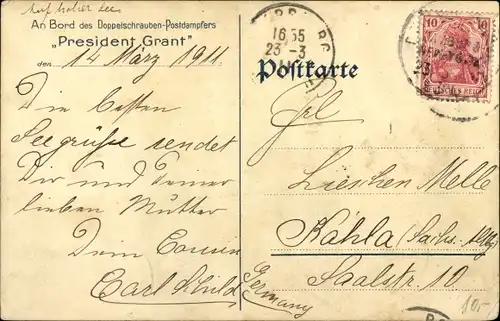 Auf hoher See
An Bord des Doppelschrauben-Postdampfers
"President Grant"
den 14 März 1911.
Die besten
Seegrüße sendet
Dir und Deiner
lieben Mutter
Dein Cousin
Carl Schild
16 35
23 -3
11
Postkarte
10 10
DEUTSCHES REICH
Frl.
Lieschen Melle
Kahla (Sachs. Altbg)
Saalstr. 10
Germany
10.-